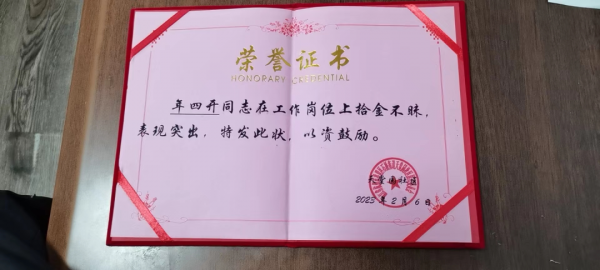 荣誉证书
HONORARY CREDENTIAL
年四开同志在工作岗位上拾金不昧，
表现突出，特发此状，以资鼓励。
社区
2023年2月6日